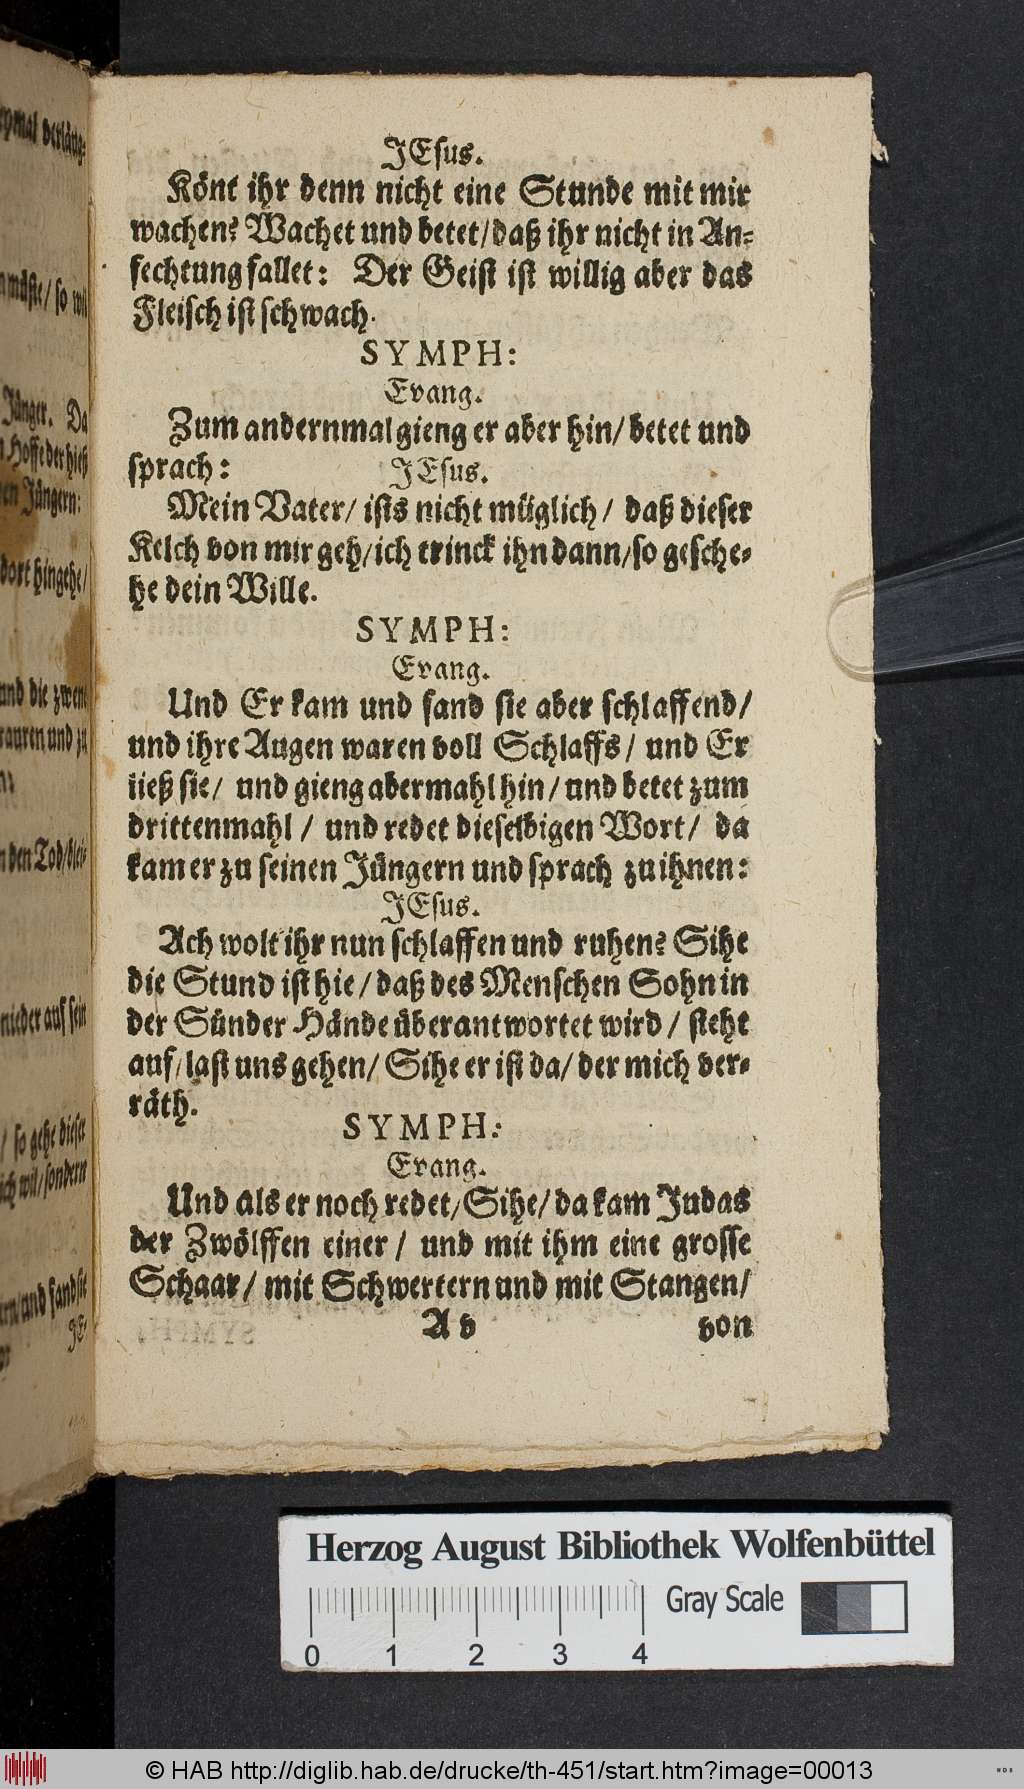 JEsus.
Könt ihr denn nicht eine Stunde mit mir
wachen? Wachet und betet/daß ihr nicht in An-
fechtung fallet: Der Geist ist willig aber das
Fleisch ist schwach.
SYMPH:
Evang.
Zum andernmal gieng er aber hin/ betet und
sprach: JEsus.
Mein Vater/ ists nicht müglich/ daß dieser
Kelch von mir geh/ich trinck ihn dann/so gesche-
he dein Wille.
SYMPH:
Evang.
Und Er kam und fand sie aber schlaffend/
und ihre Augen waren voll Schlaffs/ und Er
ließ sie/ und gieng abermahl hin/ und betet zum
drittenmahl/ und redet dieselbigen Wort/ da
kam er zu seinen Jüngern und sprach zu ihnen:
JEsus.
Ach wolt ihr nun schlaffen und ruhen? Sihe
die Stund ist hie/ daß des Menschen Sohn in
der Sünder Hände überantwortet wird/ steht
auf/last uns gehen/ Sihe er ist da/ der mich ver-
räth.
SYMPH:
Evang.
Und als er noch redet/Sihe/ da kam Judas
der Zwölffen einer/ und mit ihm eine grosse
Schaar/ mit Schwertern und mit Stangen/
A v von
Jünger. Da
Hoffe der hieß
Jüngern:
dort hingehe/
und die zween
und zu
den Tod/
nieder auf sein
/ so gehe dieser
wil/sondern
und fand sie
JE-
Herzog August Bibliothek Wolfenbüttel
Gray Scale
0 1 2 3 4
© HAB http://diglib.hab.de/drucke/th-451/start.htm?image=00013